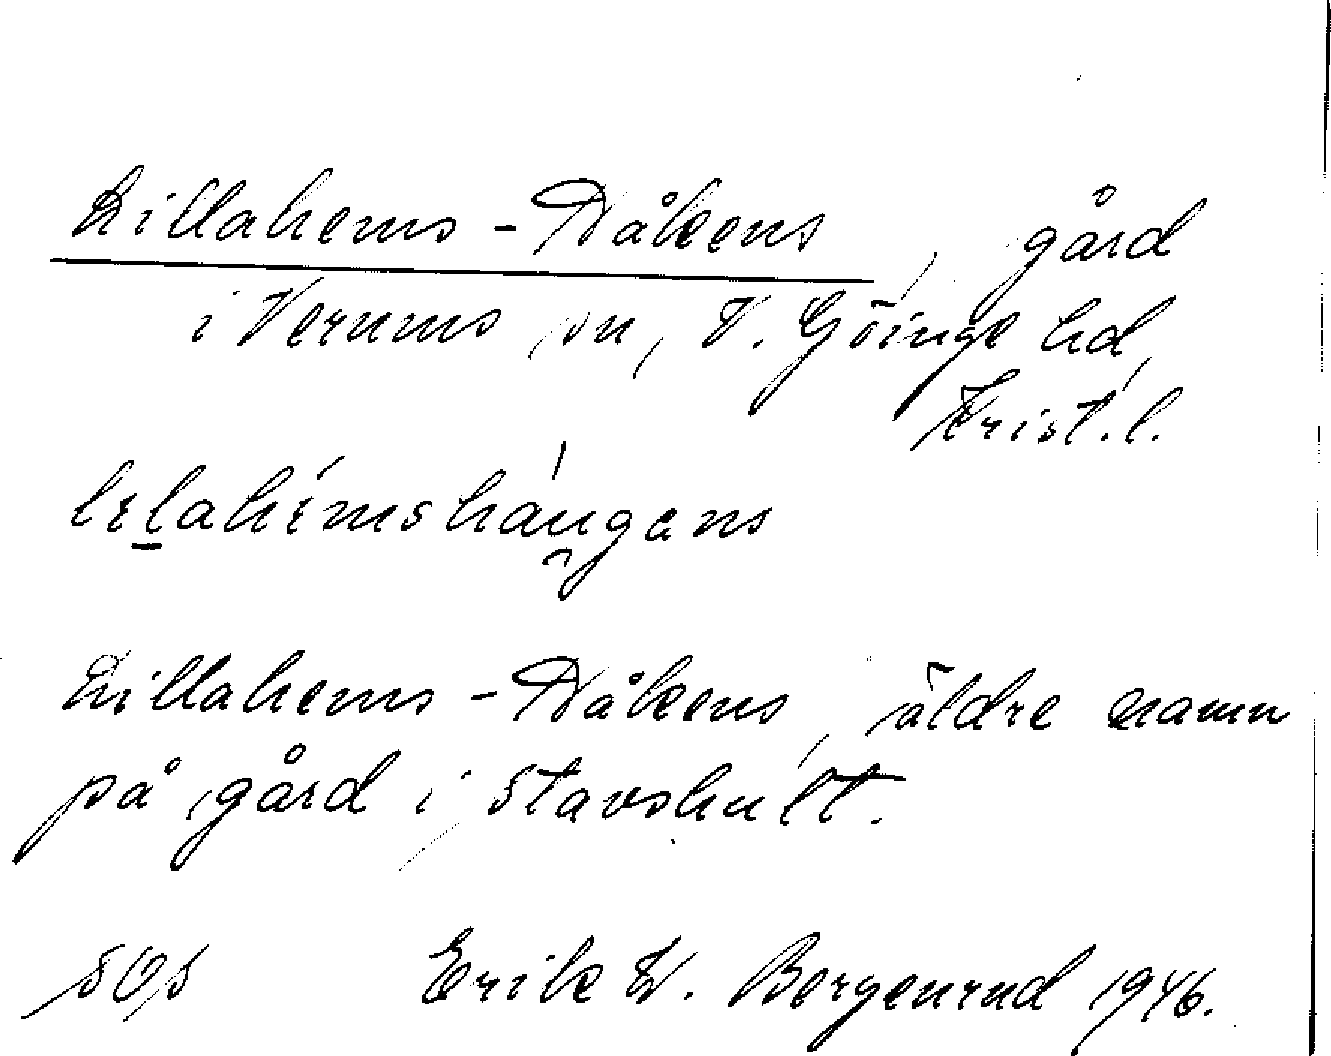 Lillahems-Håkens, gård
i Verums sn, V. Göinge hd,
Krist. l.
lelahémshǻngans
Lillahems-Håkens, äldre namn
på gård i Stavshult.
Erik W. Bergenrud 1946.